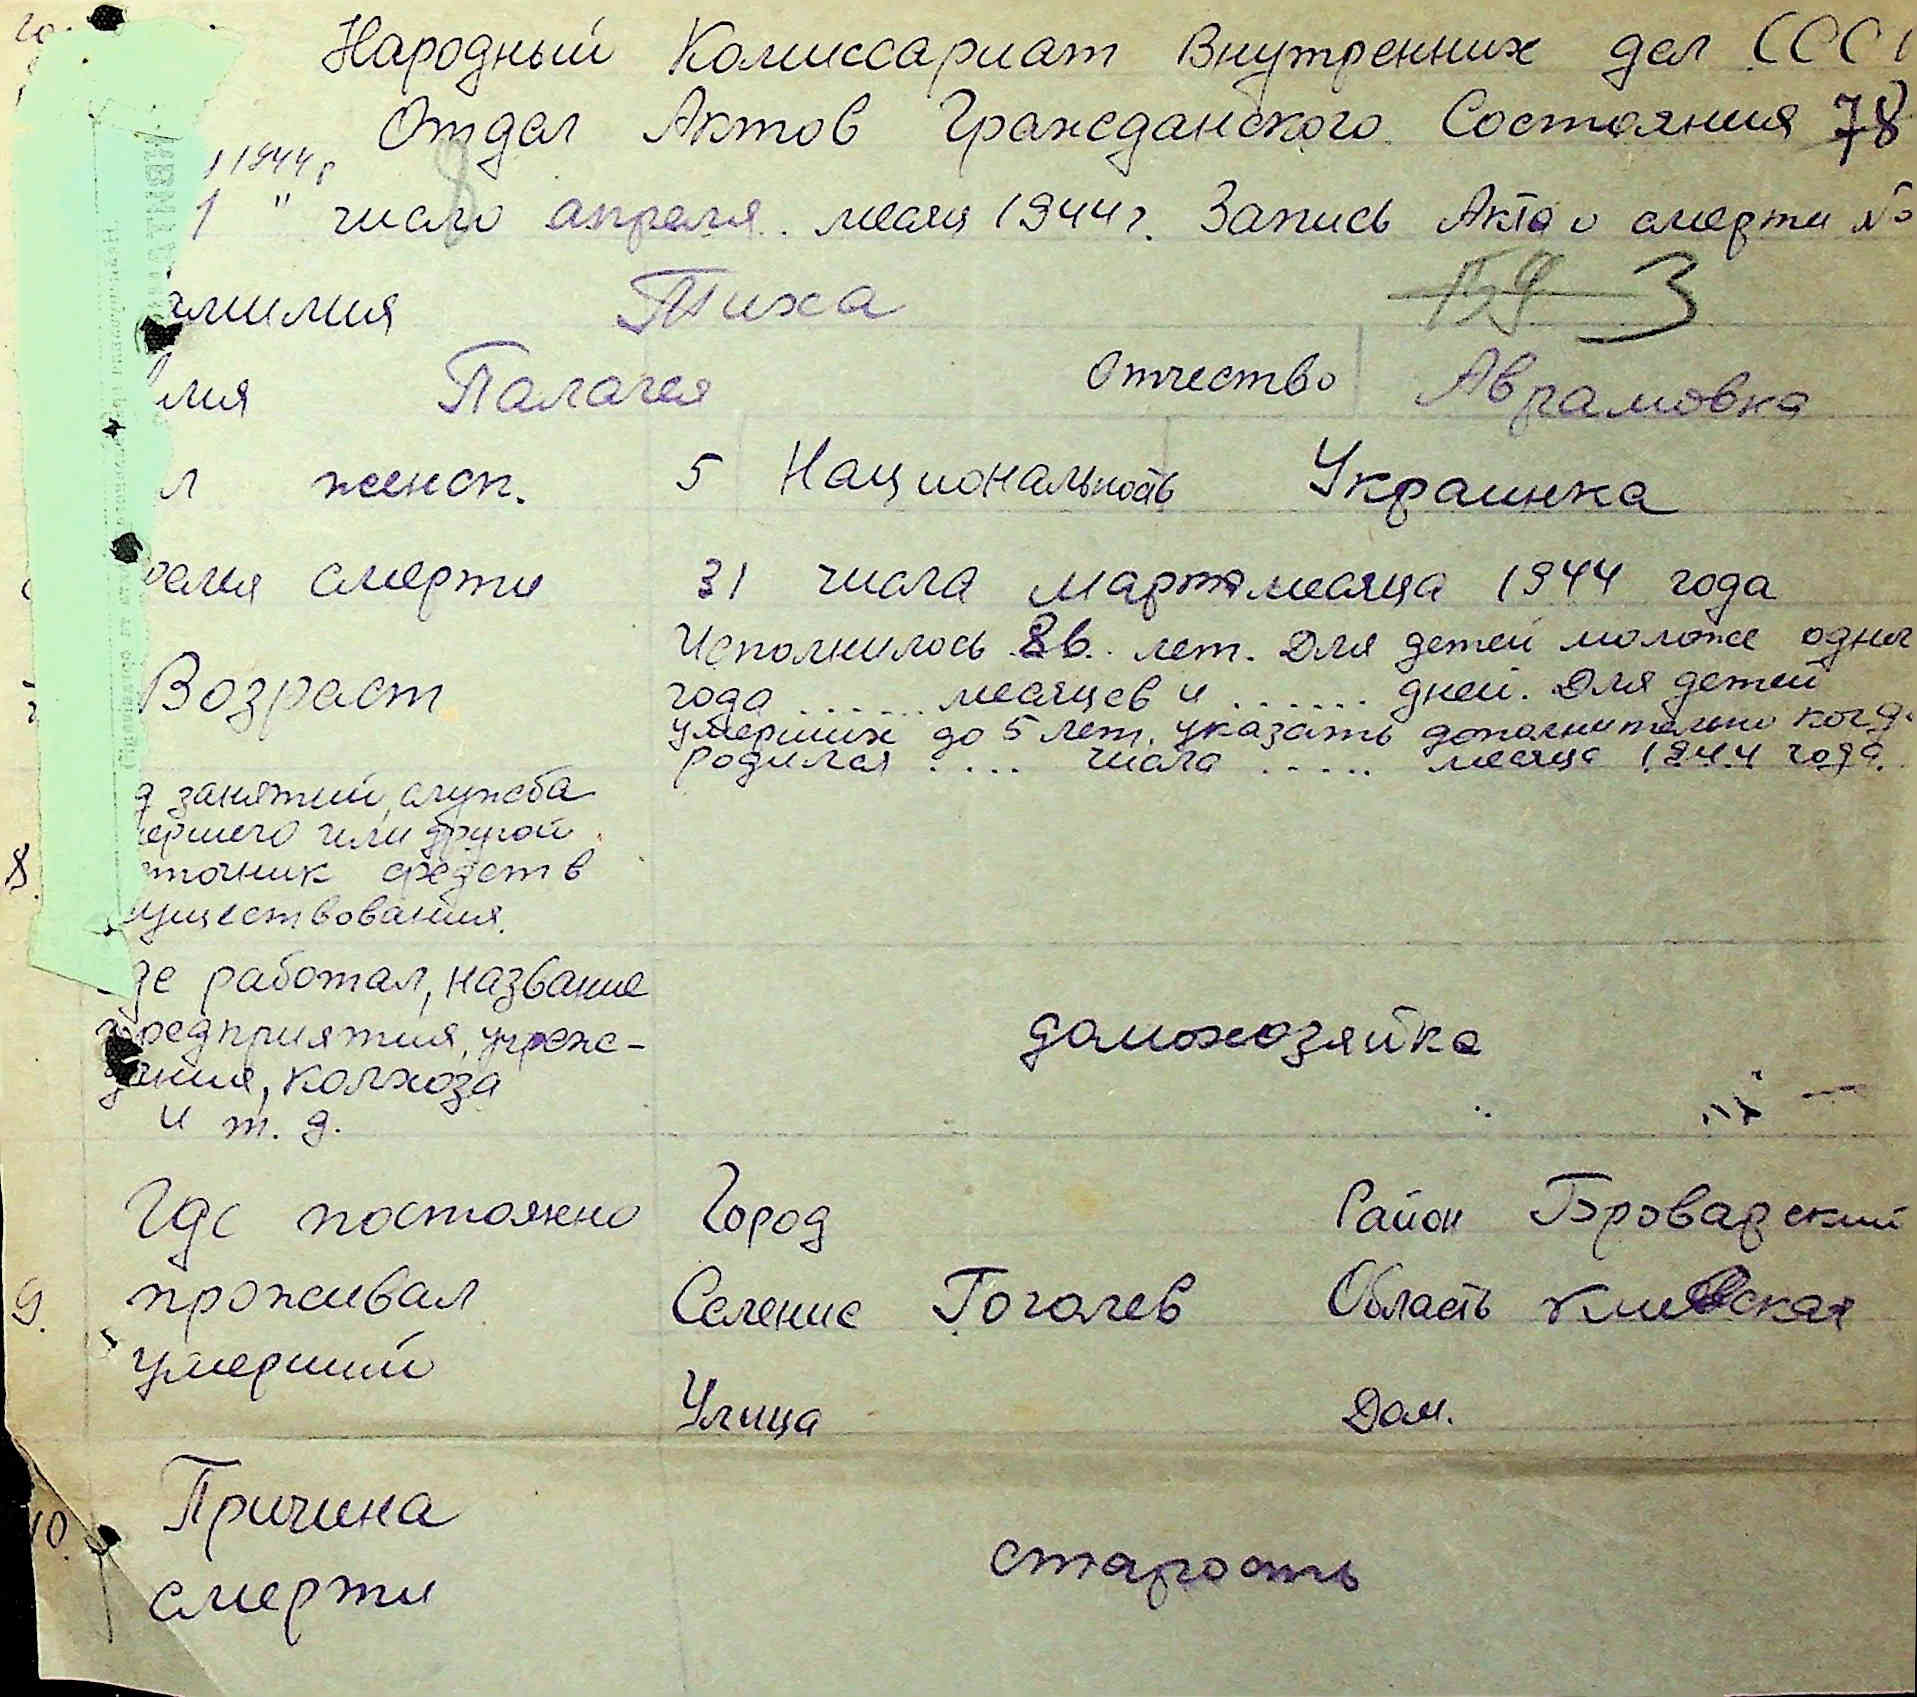 Народный Комиссариат Внутренних дел ССС
Отдел Актов Гражданского Состояния 78
1944 г
1 " число апреля месяц 1944 г. Запись Акта о смерти №
амилия Тиха 3
мя Палагея Отчество Аврамовка
л женск. 5 Национальность Украинка
ремя смерти 31 числа марта месяца 1944 года
Возраст Исполнилось 86 лет. Для детей моложе одног
года ...... месяцев и ...... дней. Для детей
умерших до 5 лет, указать дополнительно когд
родился .... числа ..... месяца 1944 года.
д занятий, служба
мершего или другой
8. сточник средств
уществования.
де работал, название
предприятия, учреж-
дения, колхоза домохозяйка
и т. д.
Где постоянно Город Район Броварский
9. проживал Селение Гоголев Область Киевская
умерший Улица Дом.
10. Причина
смерти старость